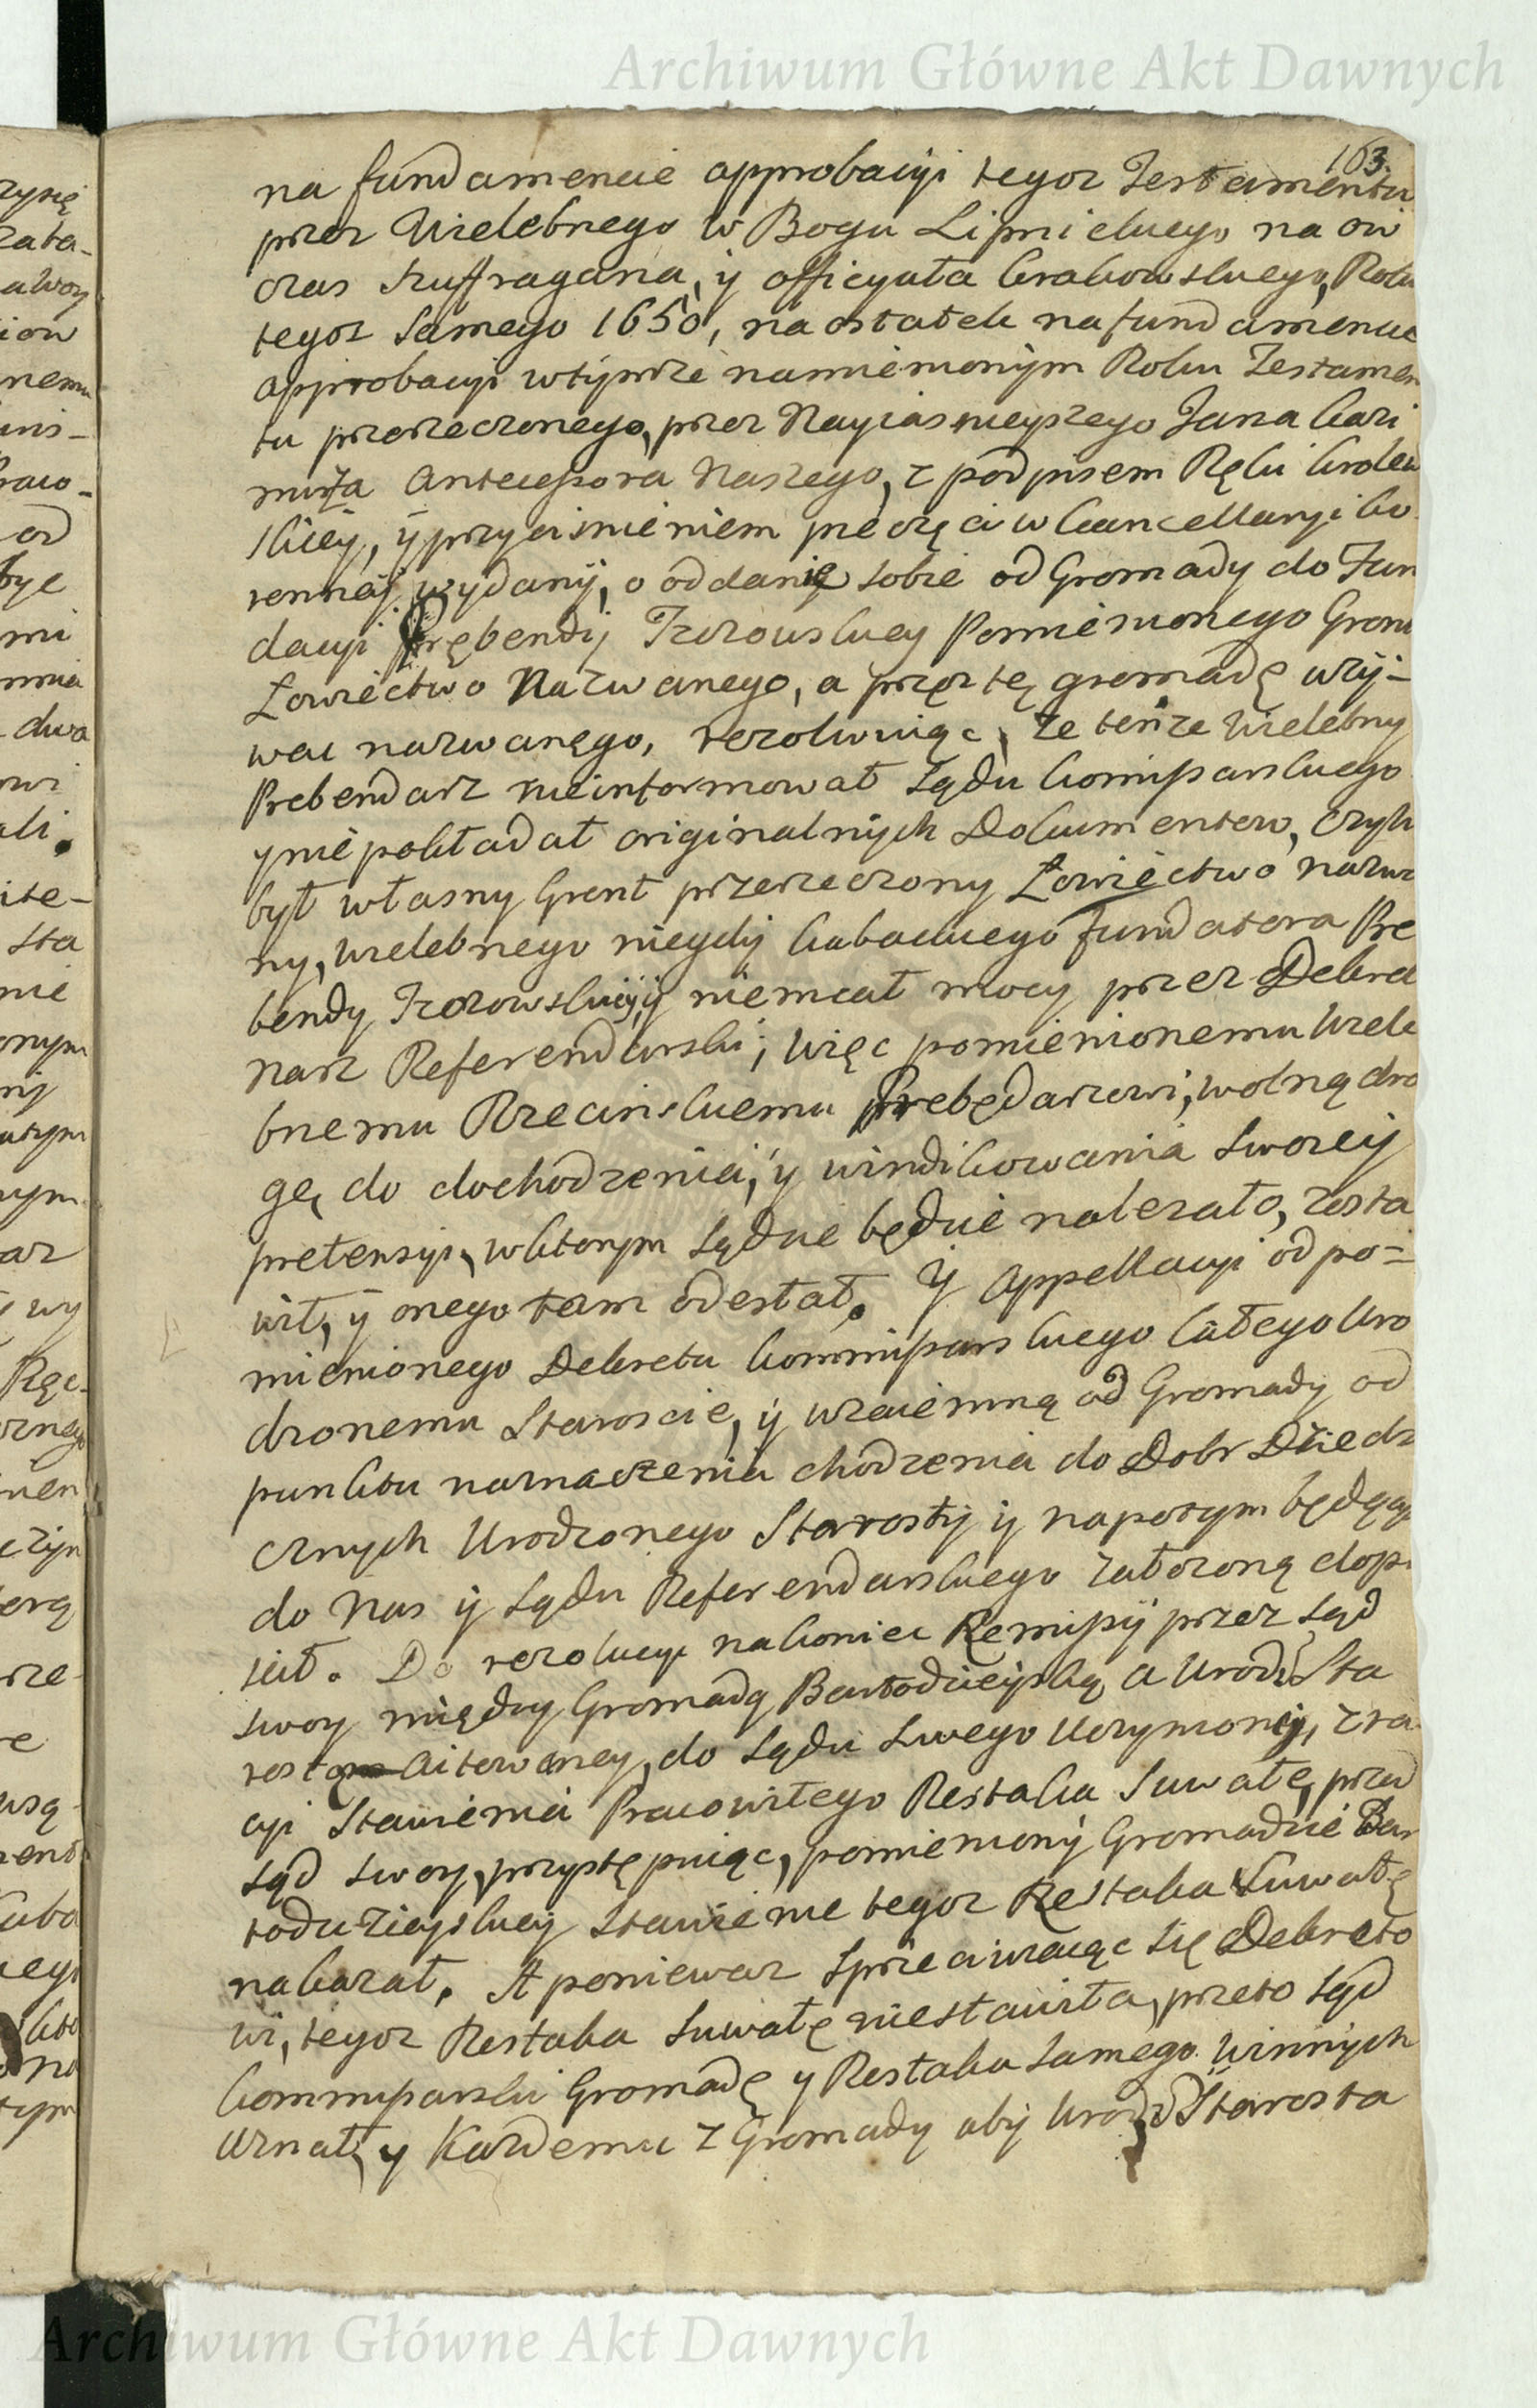 Archiwum Główne Akt Dawnych
163.
na fundamencie approbacyi tegoz Testamentu
przez Wielebnego w Bogu Lipnickiego na ow
czas Suffragana, y officyała Krakowskiego, Roku
tegoz Samego 1650, na ostatek na fundamencie
approbacyi w tymże namienionym Roku Testamen
tu przerzeczonego, przez Nayiasnieyszego Jana Kazi
mirza Antecessora Naszego, z podpisem Ręki Krolew
skiey, y przycisnieniem pieczęci w Kancellaryi Ko
ronney wydany, o oddanie sobie od Gromady do Fun
dacyi Prębendy Jezowskiey Pomienionego Gront
Łowiectwo Nazwanego, a przez tę gromadę uzy-
wac nazwanęgo, rezolwuiąc, że tenże Wielebny
Prebendarz nieinformował Sądu Kommissarskiego
y nie pokładał originalnych Dokumentow, czyli
był własny Gront przerzeczony Łowiectwo nazwa
ny, Wielebnego niegdy Kubackiego fundatora Pre
bendy Jezowskiey, y niemiał mocy przez Dekret
nasz Referendarski; więc pomienionemu Wiele
bnemu Rzecinskiemu Prebędarzowi, wolną dro
gę, do dochodzenia, y windikowania Swoiey
pretensyi, w ktorym Sądzie będzie nalezało, zosta
wił, y onego tam odesłał. Y Appellacyi od po=
mienionego Dekretu Kommissarskiego Całego Uro
dzonemu Staroscie, y wzaiemną od Gromady od
punktu naznaczenia chodzenia do Dobr Dziedz
cznych Urodzonego Starosty y napotym będący
do Nas y Sądu Referendarskiego załozoną dopu
scił. Do rezolucyi nakoniec Remissy przez Sąd
swoy między Gromadą Bartodzieyską a Urodz: Sta
rostą citowaney, do Sądu Swego uczynioney, z ra
cyi Stawienia Pracowitego Restaka Suwałę, przed
Sąd Swoy, przystępuiąc, pomieniony Gromadzie Bar
todzieyskiey Stawienie tegoz Restaka Suwałę
nakazał. A poniewaz Sprzeciwiaiąc się Dekreto
wi, tegoz Restaka Suwałę niestawiła, przeto Sąd
Kommissarski Gromadę y Restaka Samego winnych
Uznał, y Kazdemu z Gromady aby Urodz: Starosta
Archiwum Główne Akt Dawnych